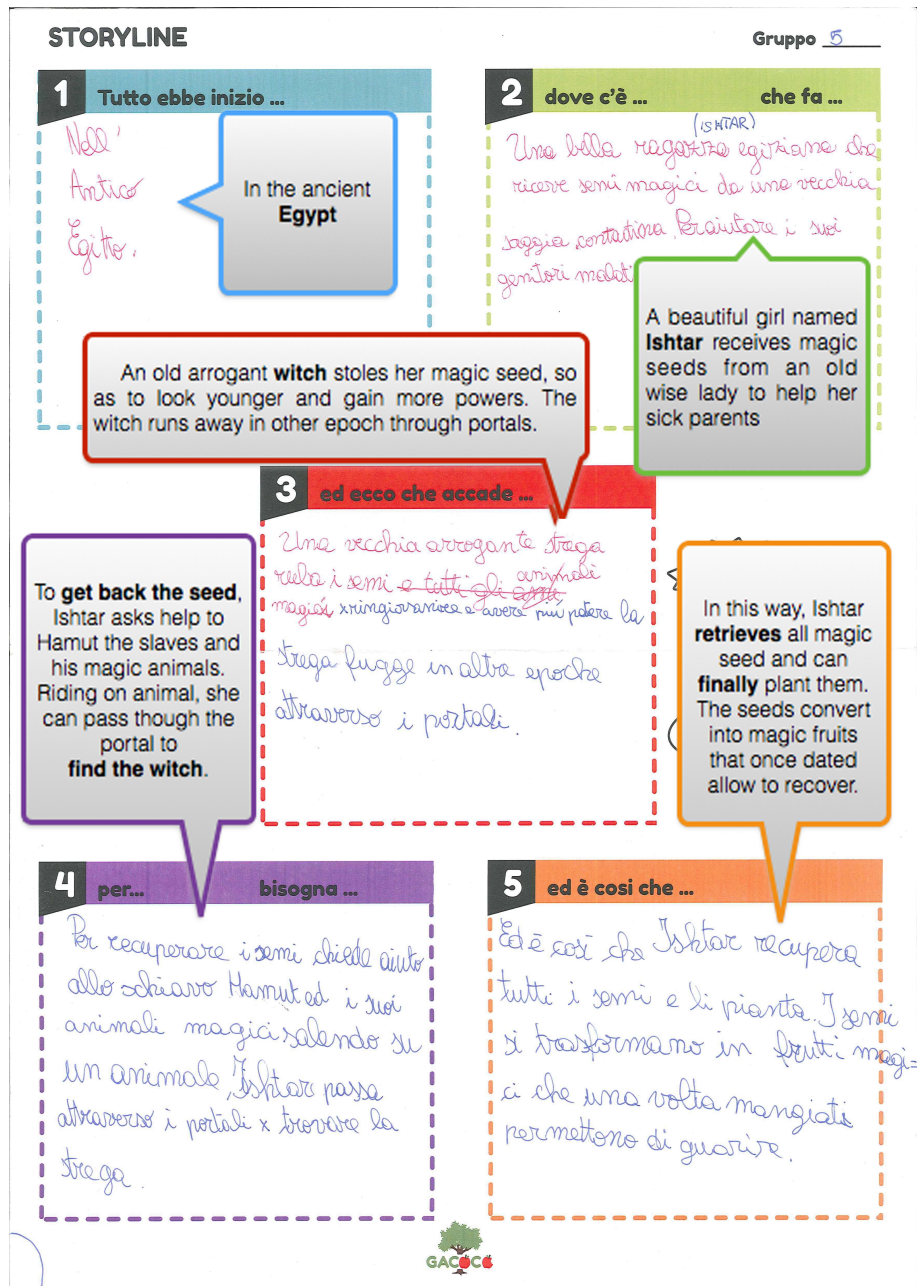 STORYLINE
Gruppo 5
1 Tutto ebbe inizio ...
Nell'
Antico
Egitto.
In the ancient
Egypt
2 dove c'è ... che fa ...
(ISHTAR)
Una bella ragazza egiziana che
riceve semi magici da una vecchia
saggia contadina. Per aiutare i suoi
genitori malati
A beautiful girl named
Ishtar receives magic
seeds from an old
wise lady to help her
sick parents
An old arrogant witch stoles her magic seed, so
as to look younger and gain more powers. The
witch runs away in other epoch through portals.
3 ed ecco che accade ...
Una vecchia arrogante strega
ruba i semi e tutti gli animali
magici x ringiovanire e avere più potere la
strega fugge in altre epoche
attraverso i portali.
To get back the seed,
Ishtar asks help to
Hamut the slaves and
his magic animals.
Riding on animal, she
can pass though the
portal to
find the witch.
In this way, Ishtar
retrieves all magic
seed and can
finally plant them.
The seeds convert
into magic fruits
that once dated
allow to recover.
4 per... bisogna ...
Per recuperare i semi chiede aiuto
allo schiavo Hamut ed i suoi
animali magici salendo su
un animale, Ishtar passa
attraverso i portali x trovare la
strega.
5 ed è cosi che ...
Ed è così che Ishtar recupera
tutti i semi e li pianta. I semi
si trasformano in frutti magi=
ci che una volta mangiati
permettono di guarire.
GACOCO